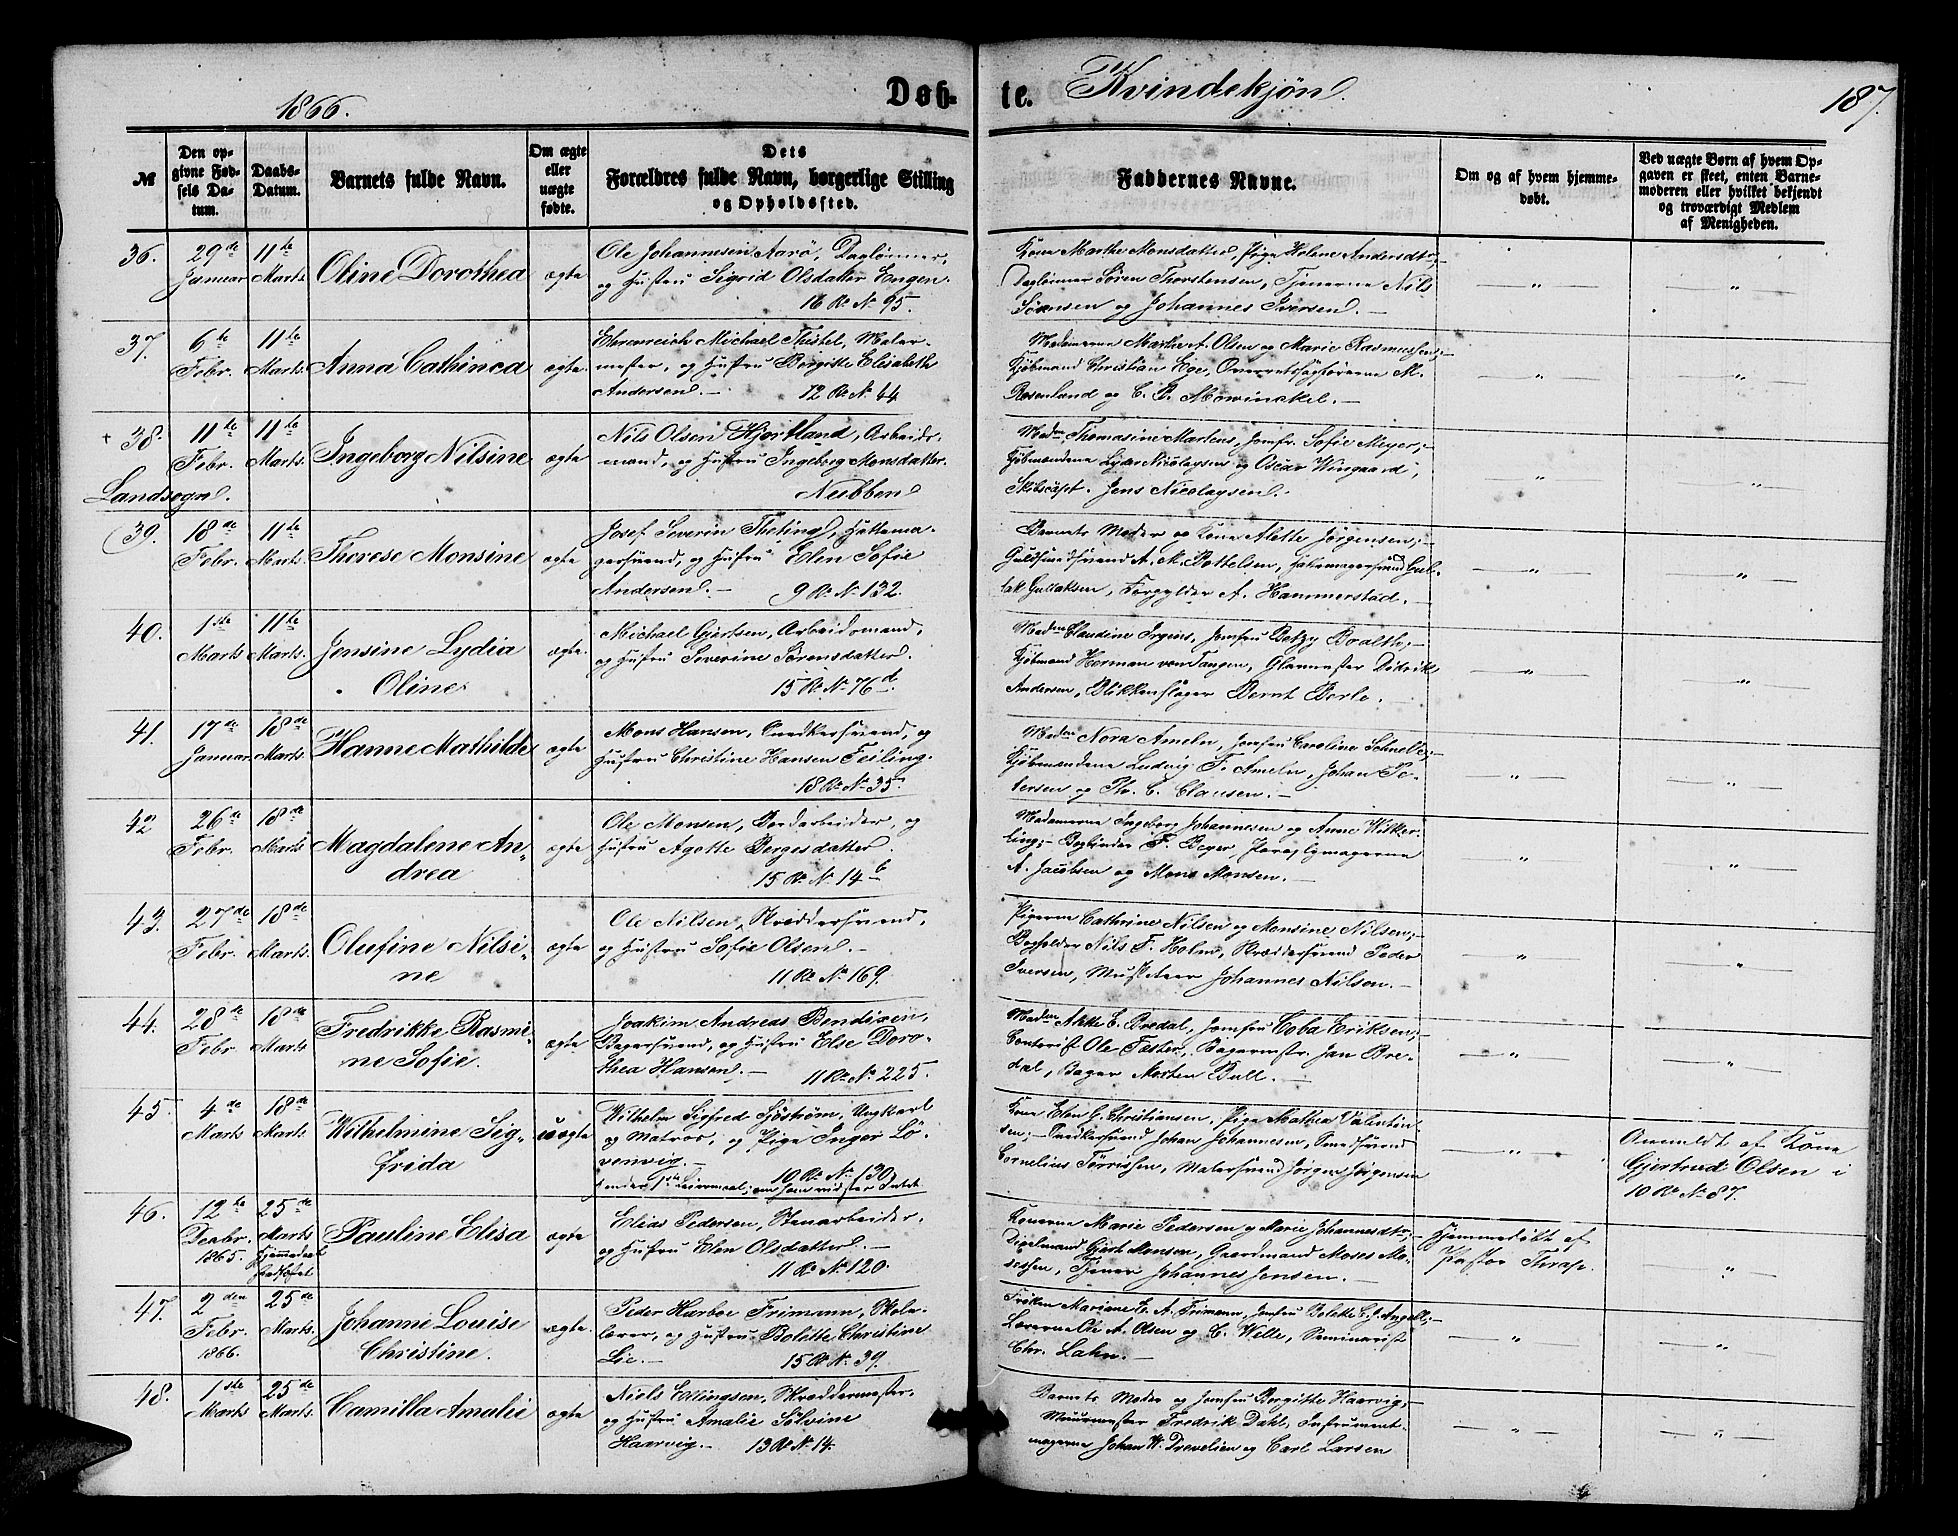 1866.
Døb-
te.
Kvindekjøn.
187.
№
Den op-
givne Fød-
sels Da-
tum.
Daabs-
Datum.
Barnets fulde Navn.
Om ægte
eller
uægte
fødte.
Dets
Forældres fulde Navn, borgerlige Stilling
og Opholdssted.
Faddernes Navne.
Om og af hvem hjemme-
døbt.
Ved uægte Børn af hvem Op-
gaven er skeet, enten Barne-
moderen eller hvilket bekjendt
og troværdigt Medlem
af Menigheden.
36.
29de
Januar
11te
Marts
Oline Dorothea
ægte
Ole Johannesen Aarø, Daglønner,
og Hustru Sigrid Olsdatter Engen.
16 R. N. 95.
Kone Marthe Monsdatter, Pige Helene Andersdtr;-
Daglønner Søren Thorstensen, Tjenerne Nils
Sørensen og Johannes Iversen.-
37.
6te
Febr.
11te
Marts.
Anna Cathinca
ægte.
Ehrenreich Michael Tistel, Maler-
mester, og Hustru Borgitte Elisabeth
Andersen.- 12 R. N. 44.
Madamerne Marthe A. Olsen og Marie Rasmussen;-
Kjøbmand Christian Ege, Overretssagførerne M.
Rosenlund og C. P. Mowinckel.-
+ 38.
Landsogn.
11te
Febr.
11te
Marts.
Ingeborg Nilsine
ægte
Nils Olsen Hjortland, Arbeids-
mand, og Hustru Ingeborg Monsdatter.
Nubben
Madm Thomasine Martens, Jomfr. Sofie Meyer;-
Kjøbmændene Lyder Nicolaysen og Oscar Wingaard;
Skibscapt. Jens Nicolaysen.
39.
18de
Febr.
11te
Marts.
Therese Monsine
ægte
Josef Severin Theting, Hattema-
gersvend, og Hustru Elen Sofie
Andersen.- 9 R. N. 132.
Barnets Moder og Kone Alette Jørgensen;-
Guldsmedsvend A. M. Bottelsen, Hattemagersvend Gul-
lak Gullaksen, Forgylder A. Hammerstad.-
40.
1ste
Marts
11te
Marts.
Jensine Lydia
Oline
ægte.
Michael Gjertsen, Arbeidsmand,
og Hustru Severine Sørensdatter.
15 R. N. 76d.
Madm Claudine Irgens, Jomfru Betzy Boalth;-
Kjøbmand Herman von Tangen, Glarmester Didrik
Andersen, Blikkenslager Bernt Berle.
41.
17de
Januar
18de
Marts.
Hanne Mathilde
ægte
Mons Hansen, Snedkersvend, og
Hustru Christine Hansen Feiling.
18 R. N. 35.
Madm Nora Ameln, Jomfru Caroline Schnelle;-
Kjøbmændene Ludvig F. Ameln, Johan Pe-
tersen og Th. C. Clausen.-
42
26de
Febr.
18de
Marts
Magdalene An-
drea
ægte
Ole Monsen, Bordarbeider, og
Hustru Agethe Borgesdatter.
15 R. N. 14b
Madamerne Ingeborg Johannesen og Anne Wilker-
ling;- Bogbinder F. Beyer, Paraplymagerne
A. Jacobsen og Mons Monsen.-
43.
27de
Febr.
18de
Marts.
Olufine Nilsi-
ne
ægte
Ole Nilsen, Skræddersvend,
og Hustru Sofie Olsen.-
11 R. N. 169.
Pigerne Cathrine Nilsen og Monsine Nilsen;-
Bogholder Nils F. Holm, Skræddersvend Peder
Iversen, Musketeer Johannes Nilsen.-
44.
28de
Febr.
18de
Marts.
Fredrikke Rasmi-
ne Sofie.
ægte
Joakim Andreas Bendixen,
Bagersvend, og Hustru Else Doro-
thea Hansen.- 11 R. N. 225.
Madm Alette C. Bredal, Jomfru Coba Eriksen;-
Contorist Ole Tester, Bagermstr. Jan Bre-
dal, Bager Morten Bull.-
45.
4de
Marts
18de
Marts.
Wilhelmine Sig-
frida
uægte
Wilhelm Sigfred Sjøstrøm, Ungkarl
og Matros, og Pige Inger Lö-
venvig.
10 R. N. 130,
Kone Elen G. Christiansen, Pige Mathea Valentin-
sen;- Snedkersvend Johan Johannesen, Smedsvend
Cornelius Torrissen, Malersvend Jørgen Jørgensen
Anmeldt af Kone
Gjertrud Olsen i
10 R. N. 87.
46.
12te
Decbr.
1865.
25de
Marts
Hjemmedaab
stadfæstet
Pauline Elisa
ægte
Elias Pedersen, Stenarbeider,
og Hustru Elen Olsdatter.-
11 R. N. 120.
Konerne Marie Pedersen og Marie Johannesdtr;-
Gjert Monsen, Gaardmand Moses Mo-
sessen, Tjener Johannes Jensen.-
Hjemmedøbt af
Pastor Thrap.
47.
2den
Febr.
1866.
25de
Marts.
Johanne Louise
Christine.
ægte.
Peder Harboe Frimann, Skole-
lærer, og Hustru Bolette Christine
Lie.- 15 R. N. 39.
Frøken Mariane E. A. Frimann, Jomfru Bolette C. J. Angell;-
Lærerne Ole A. Olsen og C. Welle, Seminarist
Chr. Lahn.-
48.
1ste
Marts.
25de
Marts.
Camilla Amalie
ægte
Niels Ellingsen, Skræddermester,
og Hustru Amalie Sølvine
Haarvig.- 13 R. N. 14.
Barnets Moder og Jomfru Bergitte Haarvig;-
Muurmester Fredrik Dahl, Instrument-
magerne Johan W. Trevelien og Carl Larsen